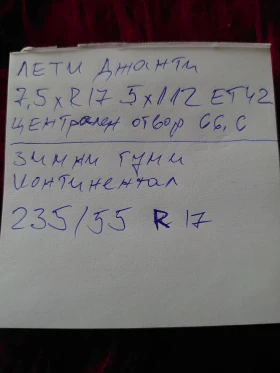 ЛЕТИ ДЖАНТИ
7,5xR17 5x112 ET42
ЦЕНТРАЛЕН ОТВОР 66,6
ЗИМНИ ГУМИ
КОНТИНЕНТАЛ
235/55 R17